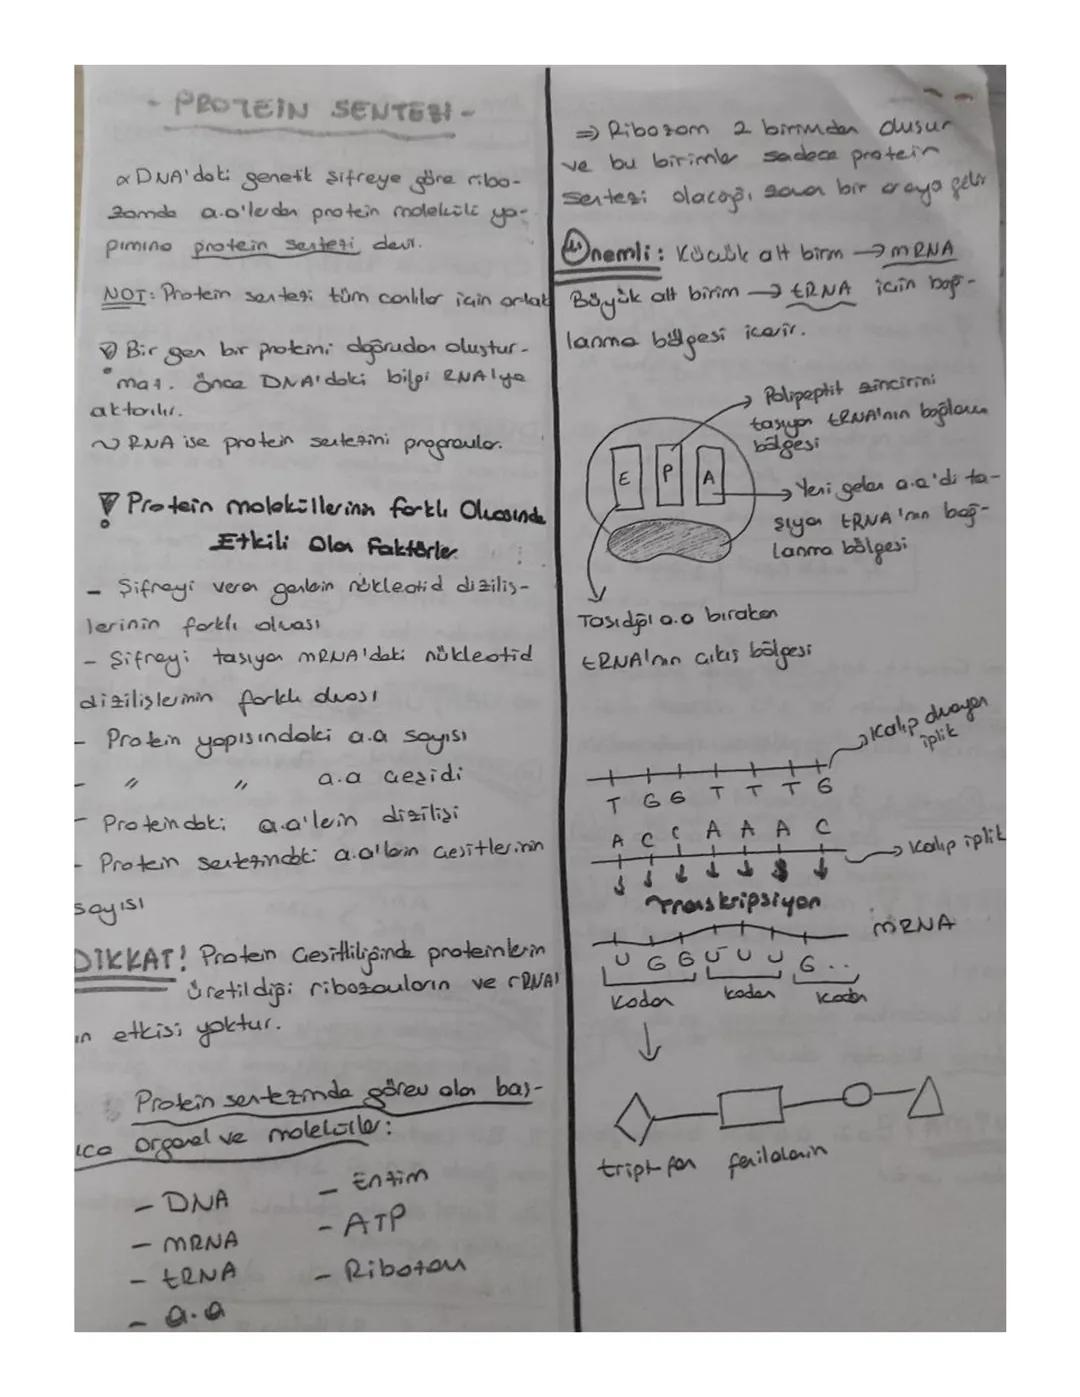 - PROTEIN SENTEZİ -
∝ DNA'daki genetik şifreye göre ribo-
zomda a.a'lerden protein molekülü ya-
pımına protein sentezi denir.
NOT: Protein sentezi tüm canlılar için ortak
Bir gen bir proteini doğrudan oluştur-
maz. Önce DNA'daki bilgi RNA'ya
aktarılır.
~ RNA ise protein sentezini programlar.
Protein moleküllerinin farklı Olmasında
Etkili Olan Faktörler
- Şifreyi veren genlerin nükleotid diziliş-
lerinin farklı olması
- Şifreyi taşıyan mRNA'daki nükleotid
dizilişlerinin farklı olması
- Protein yapısındaki a.a sayısı
- " " a.a çeşidi
- Proteindeki a.a'lerin dizilişi
- Protein sentezindeki a.a'lerin çeşitlerinin
sayısı
DİKKAT! Protein çeşitliliğinde proteinlerin
üretildiği ribozomların ve rRNA'
ın etkisi yoktur.
Protein sentezinde görev alan baş-
ıca organel ve moleküller:
- DNA
- mRNA
- tRNA
- a.a
- Enzim
- ATP
- Ribozom
⇒ Ribozom 2 birimden oluşur
ve bu birimler sadece protein
sentezi olacağı zaman bir araya gelir
Önemli: Küçük alt birim → mRNA
Büyük alt birim → tRNA için bağ-
lanma bölgesi içerir.
Polipeptit zincirini
taşıyan tRNA'nın bağlanma
bölgesi
E P A
Yeni gelen a.a'di ta-
şıyan tRNA'nın bağ-
lanma bölgesi
Taşıdığı a.a bırakan
tRNA'nın çıkış bölgesi
Kalıp olmayan
iplik
T G G T T T G
A C C A A A C
Kalıp iplik
Transkripsiyon
mRNA
U G G U U U G ..
Kodon kodon kodon
triptofan fenilalanin